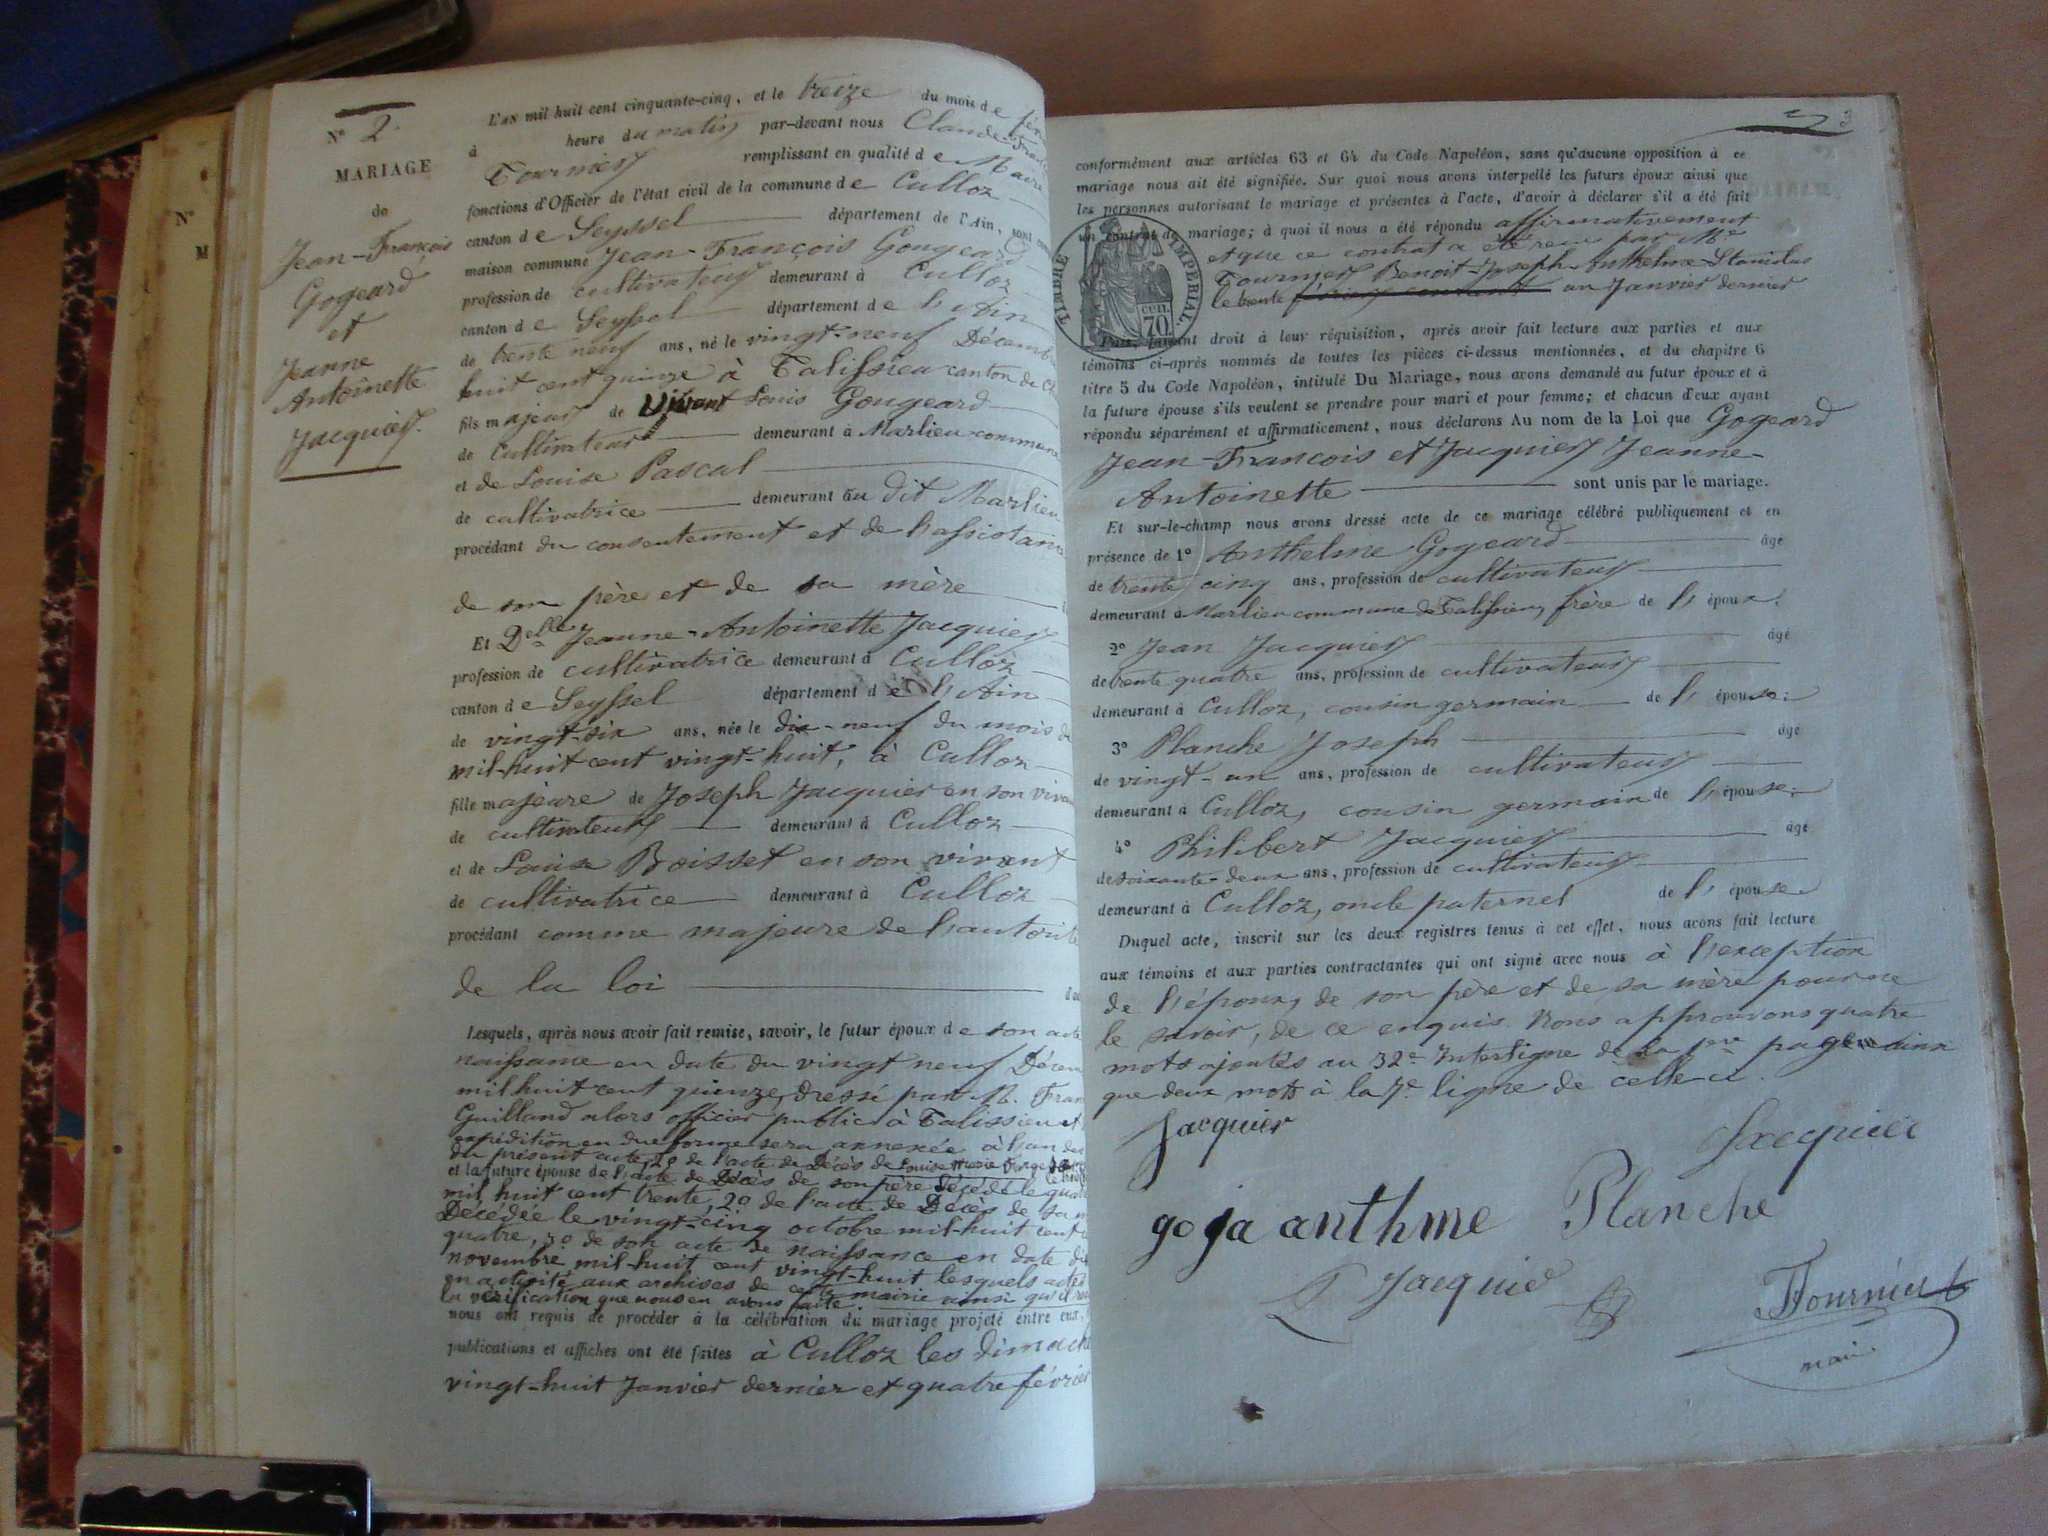 N° 2.
MARIAGE
de
Jean-François
Gogeard
et
Jeanne
Antoinette
Jacquier.
N°
M
L'AN mil huit cent cinquante-cinq, et le treize du mois de
à heure du matin par-devant nous Claude-Fran
Fournier remplissant en qualité de Maire
fonctions d'Officier de l'état civil de la commune de Culloz
canton de Seyssel département de l'Ain, sont
maison commune Jean-François Gougeard
profession de cultivateur demeurant à Culloz
canton de Seyssel département de l'Ain
de trente neuf ans, né le vingt-neuf Décembre
huit cent quinze à Talissieu canton de
fils majeur de vivant Louis Gougeard
de Cultivateur demeurant à Marlieu commune
et de Louise Pascal
de cultivatrice demeurant au dit Marlieu
procédant du consentement et de l'assistance
de son père et de sa mère
Et Delle Jeanne-Antoinette Jacquier
profession de cultivatrice demeurant à Culloz
canton de Seyssel département de l'Ain
de vingt-six ans, née le dix-neuf du mois de
mil-huit cent vingt-huit, à Culloz
fille majeure de Joseph Jacquier en son vivant
de cultivateur demeurant à Culloz
et de Louise Boisset en son vivant
de cultivatrice demeurant à Culloz
procédant comme majeure de l'autorité
de la loi
Lesquels, après nous avoir fait remise, savoir, le futur époux de son acte
naissance en date du vingt neuf Décem
mil huit cent quinze, dressé par M. Fran
Guilland alors officier public à Talissieu et
expédition en due forme sera annexée à l'un des
du présent acte, 2° de l'acte de Décès de Louise Marie
et la future épouse de l'acte de Décès de son père Décédé le quat
mil huit cent trente, 2° de l'acte de Décès de sa m
Décédée le vingt-cinq octobre mil-huit cent
quatre, 3° de son acte de naissance en date di
novembre mil-huit cent vingt-huit lesquels actes
aux archives de cette mairie ainsi qu'il
la vérification que nous en avons faite.
nous ont requis de procéder à la célébration du mariage projeté entre eux,
publications et affiches ont été faites à Culloz les dimanche
vingt-huit Janvier dernier et quatre février
3
conformément aux articles 63 et 64 du Code Napoléon, sans qu'aucune opposition à ce
mariage nous ait été signifiée. Sur quoi nous avons interpellé les futurs époux ainsi que
les personnes autorisant le mariage et présentes à l'acte, d'avoir à déclarer s'il a été fait
un contrat de mariage; à quoi il nous a été répondu affirmativement
et que ce contrat a été reçu par Me
Fournier Benoit-Joseph-Anthelme-Stanislas
le trente février courant au Janvier dernier
TIMBRE IMPÉRIAL.
CEN.
70
Puis, faisant droit à leur réquisition, après avoir fait lecture aux parties et aux
témoins ci-après nommés de toutes les pièces ci-dessus mentionnées, et du chapitre 6
titre 5 du Code Napoléon, intitulé Du Mariage, nous avons demandé au futur époux et à
la future épouse s'ils veulent se prendre pour mari et pour femme; et chacun d'eux ayant
répondu séparément et affirmaticement, nous déclarons Au nom de la Loi que Gogeard
Jean-François et Jacquier Jeanne-
Antoinette sont unis par le mariage.
Et sur-le-champ nous avons dressé acte de ce mariage célébré publiquement et en
présence de 1° Anthelme Gogeard âgé
de trente cinq ans, profession de cultivateur
demeurant à Marlieu commune de Talissieu, frère de l'époux.
2° Jean Jacquier âgé
de trente quatre ans, profession de cultivateur
demeurant à Culloz, cousin germain de l'épouse;
3° Planche Joseph âgé
de vingt-un ans, profession de cultivateur
demeurant à Culloz, cousin germain de l'épouse;
4° Philibert Jacquier âgé
de soixante-deux ans, profession de cultivateur
demeurant à Culloz, oncle paternel de l'épouse
Duquel acte, inscrit sur les deux registres tenus à cet effet, nous avons fait lecture
aux témoins et aux parties contractantes qui ont signé avec nous à l'exception
de l'époux, de son père et de sa mère pour ne
le savoir, de ce enquis. Nous approuvons quatre
mots ajoutés au 32e Interligne de la 1ere page ainsi
que deux mots à la 7e ligne de celle ci.
Jacquier
Jacquier
goja anthme Planche
Jacquier
Fournier
mair